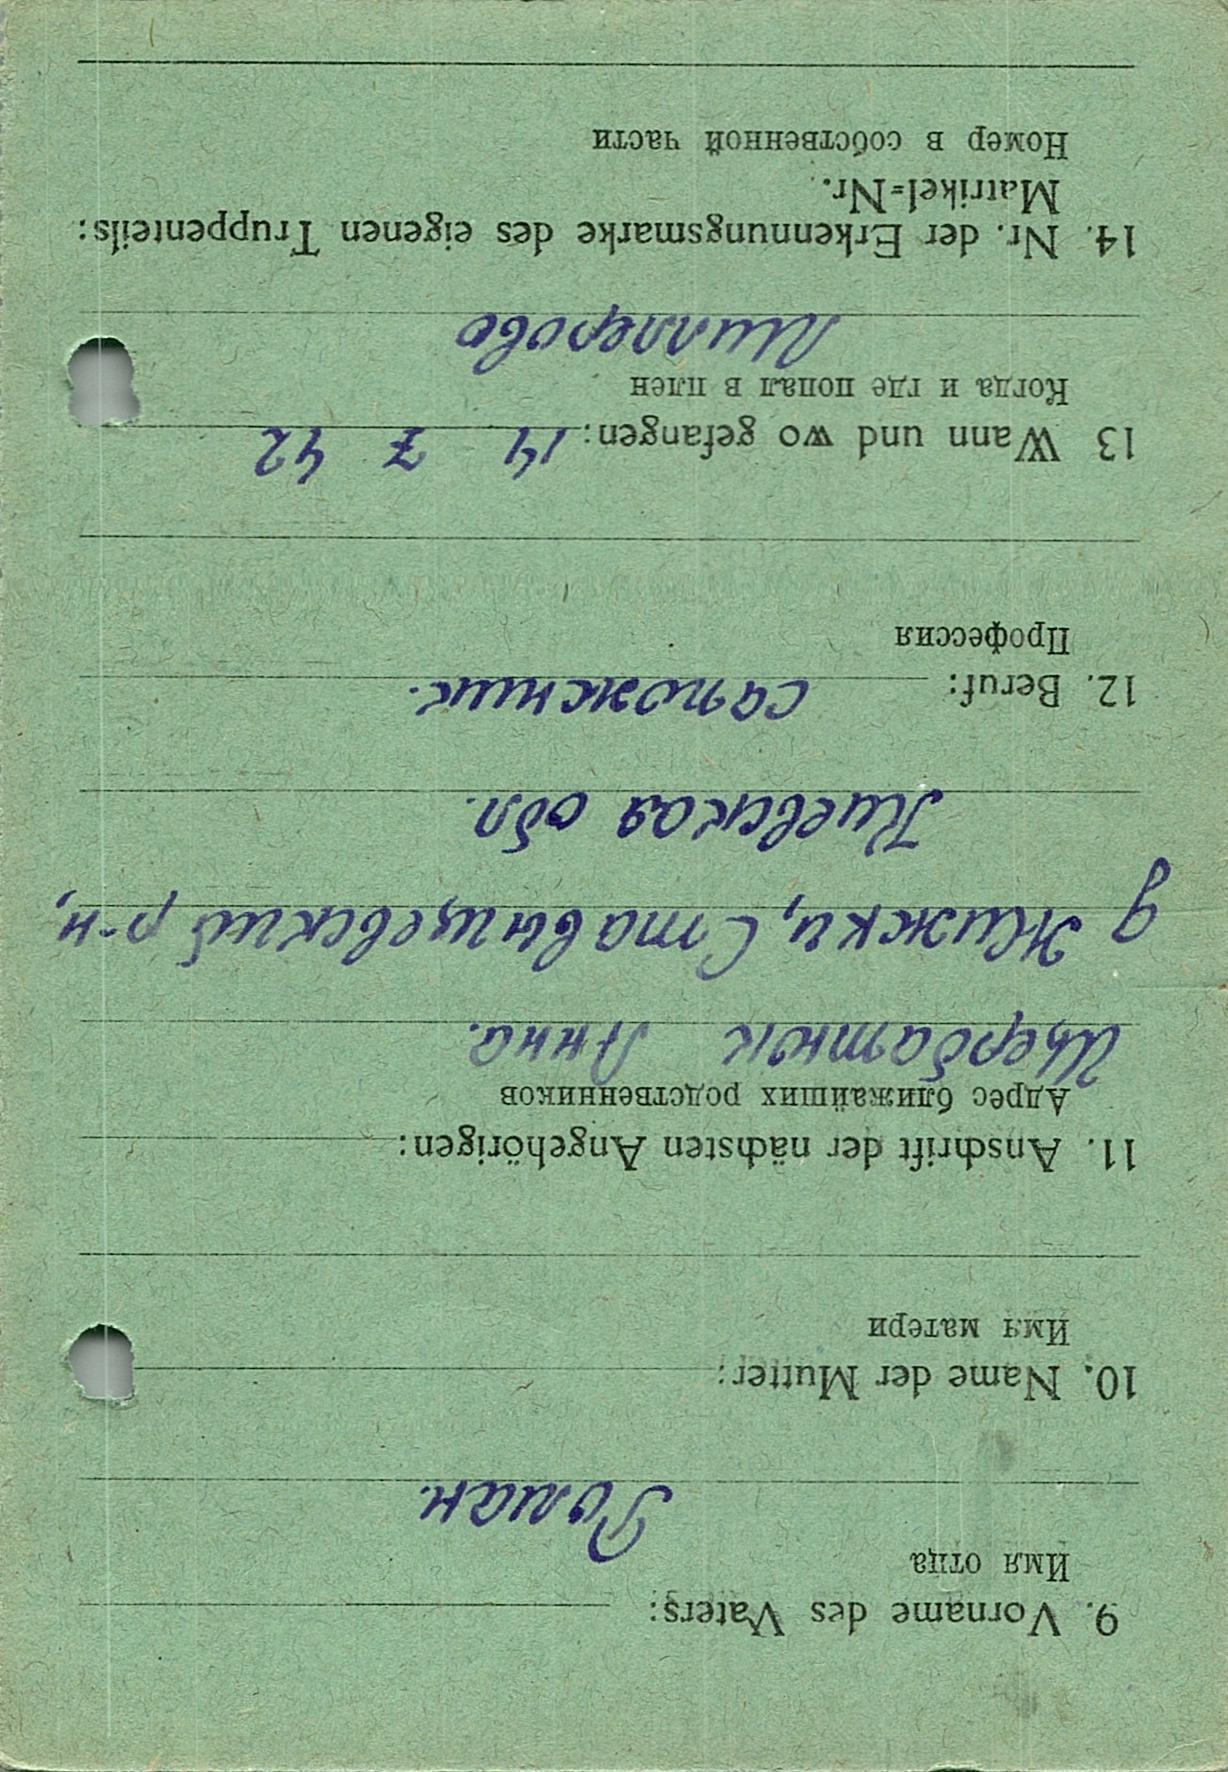 9. Vorname des Vaters:
Имя отца
Роман.
10. Name der Mutter:
Имя матери
11. Anschrift der nächsten Angehörigen:
Адрес ближайших родственников
Щербатюк Анна.
д Жижки, Ставыщевский р-н,
Киевская обл.
12. Beruf: сапожник.
Профессия
13 Wann und wo gefangen: 14 7 42
Когда и где попал в плен
Миллерово
14. Nr. der Erkennungsmarke des eigenen Truppenteils:
Matrikel=Nr.
Номер в собственной части